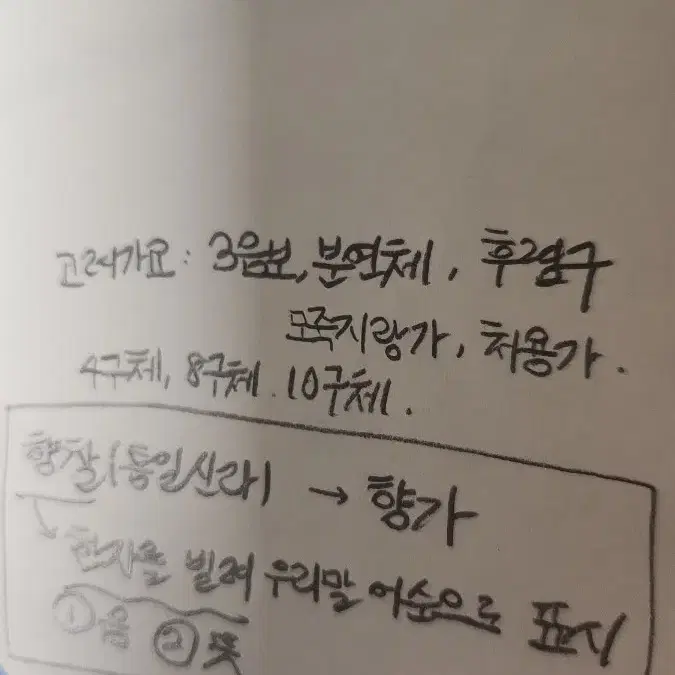 고려가요: 3음보, 분연체, 후렴구
모죽지랑가, 처용가.
4구체, 8구체. 10구체.
향찰(통일신라) → 향가
↳ 한자를 빌려 우리말 어순으로 표기
①음 ②뜻